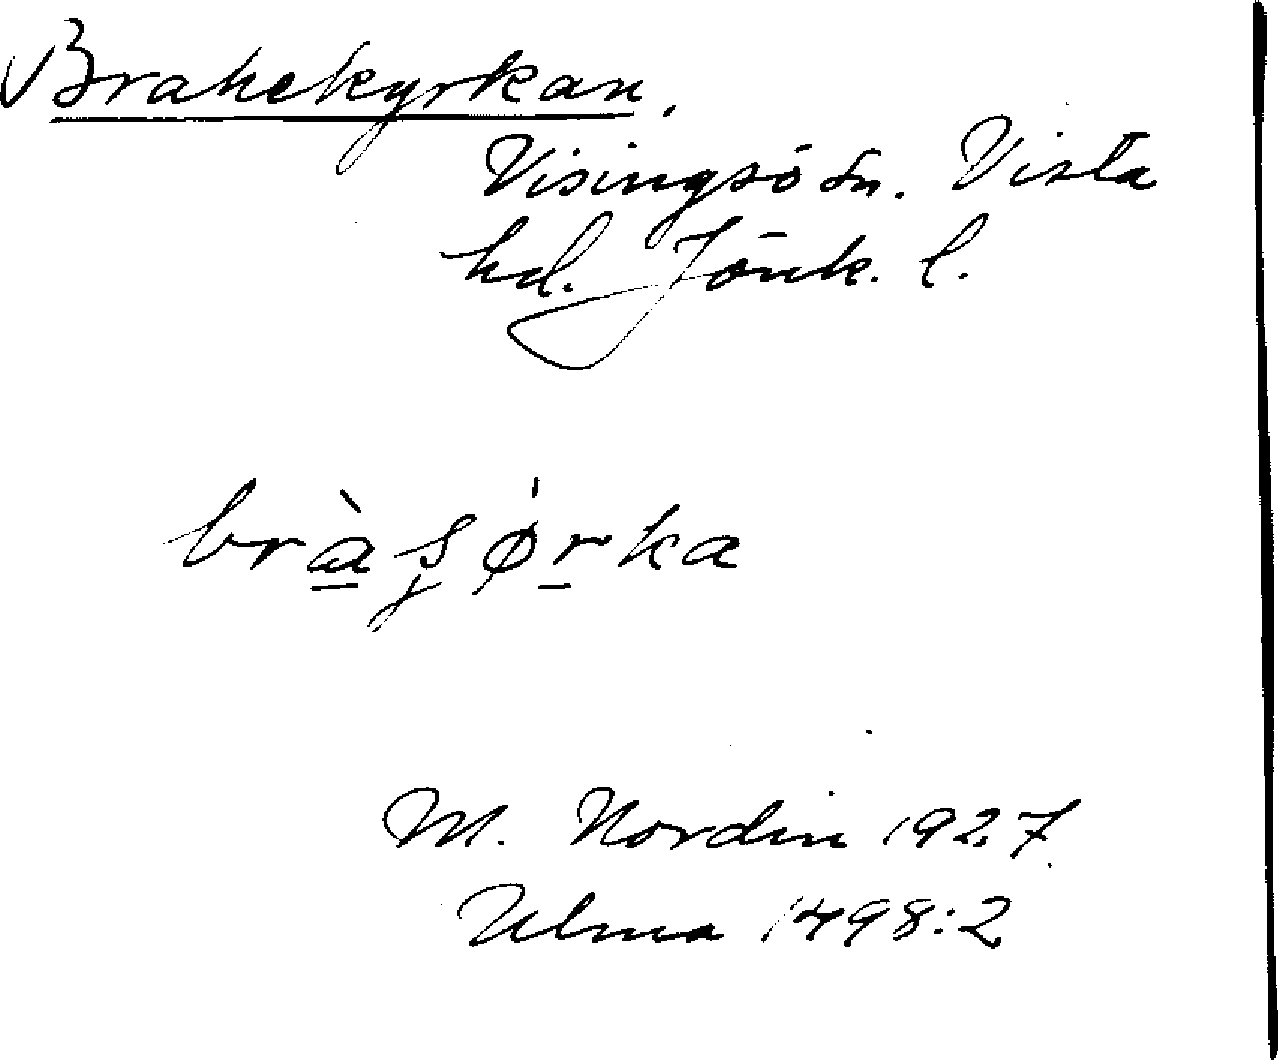 Brahekyrkan.
Visingsö sn. Vista
hd. Jönk. l.
bràʂǿrka
M. Nordin 1927
Ulma 1498:2